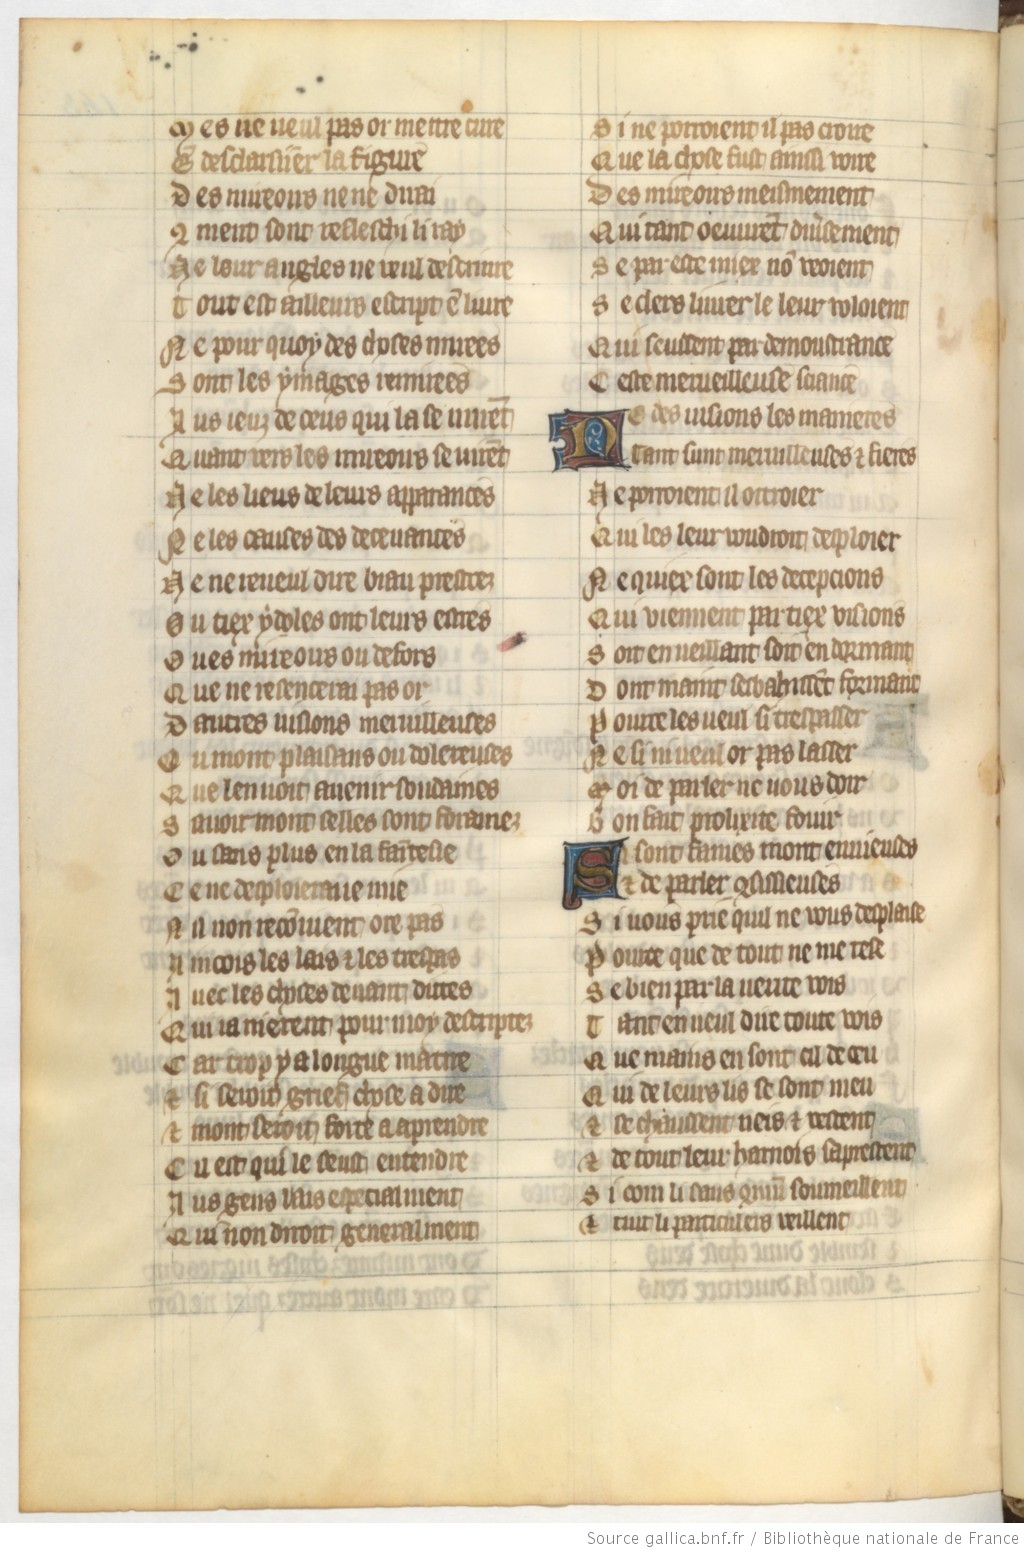 Mes ne ueul pas or mettre cure
E desclarsiier la figure
Des mireours ne ne dirai
Qment sont refleschi li ray
Ne lour angles ne veul descrire
Tout est ailleurs escript ē liure
Ne pour quoy des choses mirees
Sont les ymages remirees
Aus ieuz de ceus qui la se mirēt
Quant vers les mireours se virēt
Ne les lieus de leurs apparances
Ne les causes des deceuances
Ne ne reueul dire biau prestrez
Ou tiex ydoles ont leurs estres
Ou es mireours ou defors
Que ne resencerai pas or
Dautres uisions meruilleuses
Ou mont plaisans ou dolereuses
Que len uoit auenir soudaines
Sauoir mont selles sont forainez
Ou sans plus en la fantesie
Ce ne desploieraie mie
Nil non recōuient ore pas
Aincois les lais & les trespas
Auec les choses deuant dites
Qui ia nierent pour moy descriptez
Car trop y a longue matire
& si seroit grief chose a dire
& mont seroit forte a aprendre
Cu est qui le seust entendre
Aus gens lais especialment
Qui nō diroit generalment
Si ne porroient il pas croire
Que la chose fust ainssi voire
Des mireours meismement
Qui tant oeuurēt diu'sement
Se par este miex nō veoient
Se clers liurer le leur voloient
Qui seussent par demoustrance
Ceste merueilleuse sciance
Ne des uisions les manieres
Tant sunt meruilleuses & fieres
Ne porroient il ottroier
Qui les leur voudroit desploier
Ne quiex sont les decepcions
Qui viennent par tiex visions
Soit en ueillant soit en dormant
Dont maint sesbahissēt formant
Pour ce les ueul si trespasser
Ne si ni ueul or pas lasser
Moi de parler ne vous doir
Bon fait prolixite fouir
Si sont fames mont ennieuses
& de parler 9tssieuses
Si vous prie quil ne vous desplaise
Pour ce que de tout ne me tese
Se bien par la uerite vois
Tant en ueul dire toute vois
Que mains en sont cil de ceu
Qui de leurs lis se sont meu
& se chaussent neis & vestent
& de tout leur harnois saprestent
Si com li sans 9mū soumeillent
& tuit li particulers veillent
Source gallica.bnf.fr / Bibliothèque nationale de France